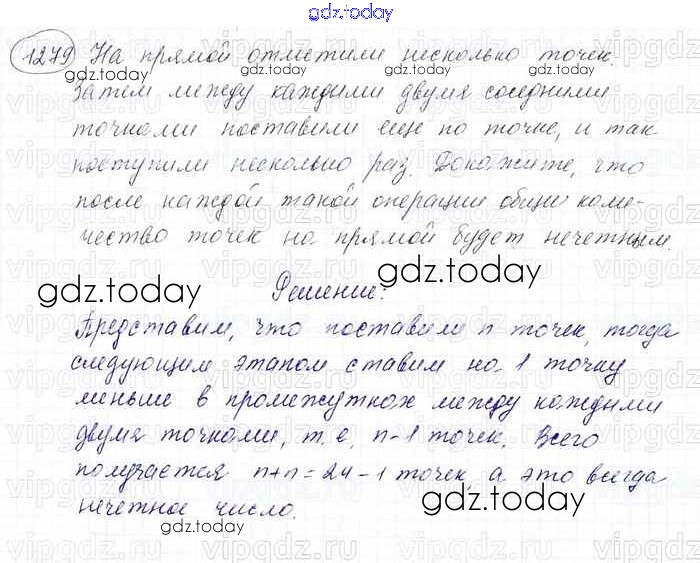 gdz.today
1279 На прямой отметили несколько точек.
gdz.today gdz.today
Затем между каждыми двумя соседними
точками поставили еще по точке, и так
поступили несколько раз. Докажите, что
после каждой такой операции общее коли-
чество точек на прямой будет нечетным.
gdz.today gdz.today
Решение:
Представим, что поставили n точек, тогда
следующим этапом ставим на 1 точку
меньше в промежутках между каждыми
двумя точками, т.е. n-1 точек. Всего
получается n+n=2n-1 точек, а это всегда
gdz.today
нечетное число.
gdz.today